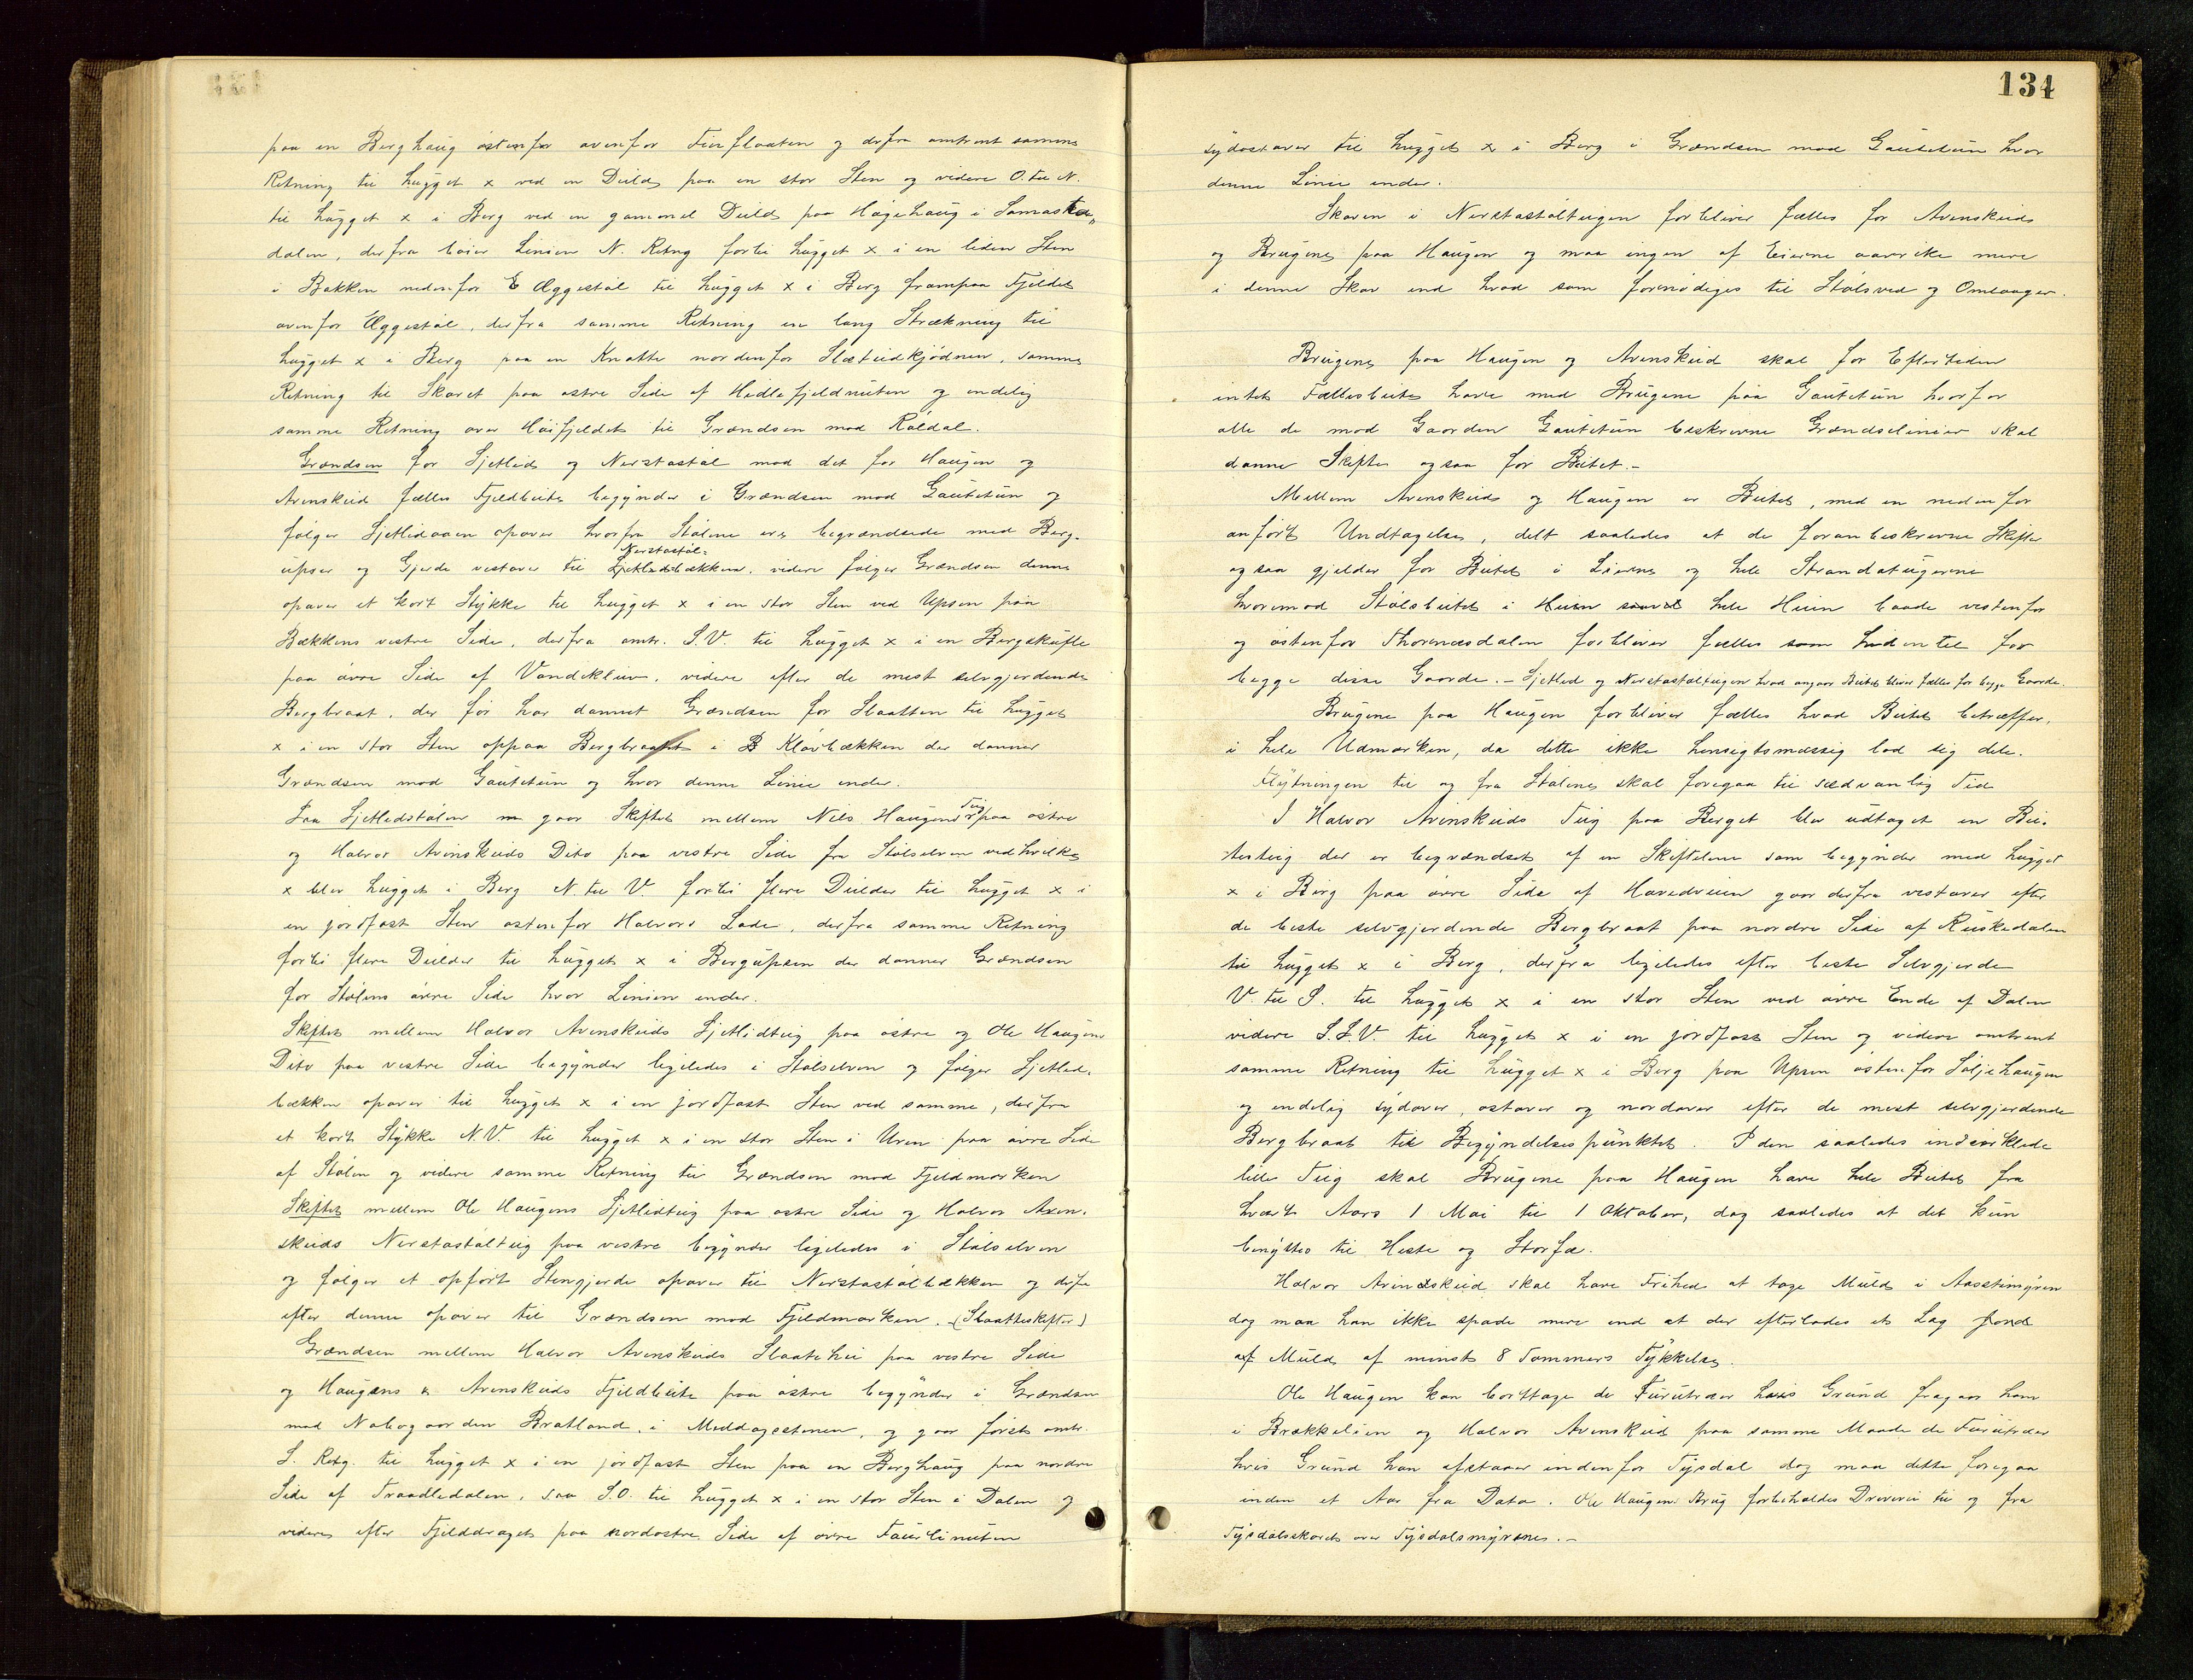 paa en Berghaug østenfor ovenfor Turflaaten og derfra omtrent samme
Retning til hugget x ved en Deild paa en stor Sten og videre O. til N.
til hugget x i Berg ved en gammel Deild paa Høgehaug i Samasta„
dalen, derfra bøier Linien N. Retng forbi hugget x i en liden Sten
i Bakken nedenfor Æggestøl til hugget x i Berg frampaa Fjeldet
ovenfor Æggestøl, derfra samme Retning en lang Strækning til
hugget x i Berg paa en Knatte nordenfor Slætlidkjødnen, samme
Retning til Skaret paa østre Side af Hedlefjeldnuten og endelig
samme Retning over Høifjeldet til Grændsen mod Røldal.
Grændsen for Sjetlid og Nerstastøl mod det for Haugen og
Avinskeid fælles Fjeldbeite begynder i Grændsen mod Gautetun og
følger Sjetlidaaen opover hvorfra Stølene er begrændsede med Berg-
upser og Gjerde vestover til Nerstastøl=
Sjetlidbækken, videre følger Grændsen denne
opover et kort Stykke til hugget x i en stor Sten ved Upsen paa
Bækkens vestre Side, derfra omtr. S.V. til hugget x i en Bergskufle
paa øvre Side af Vandekleiv, videre efter de mest selvgjerdende
Bergbraat, der før har dannet Grændsen for Slaatten til hugget
x i en stor Sten oppaa Bergbraatet i Kløvbækken der danner
Grændsen mod Gautetun og hvor denne Linie ender.
Paa Sjetlidstølen gaar Skiftet mellem Nils Haugens Teig paa østre
og Halvor Avinskeids Dito paa vestre Side fra Stølselven ved hvilke
x blev hugget i Berg N. til V. forbi flere Deilder til hugget x i
en jordfast Sten østenfor Halvors Lade, derfra samme Retning
forbi flere Deilder til hugget x i Bergupsen der danner Grændsen
for Stølens øvre Side hvor Linien ender.
Skiftet mellem Halvor Avenskeids Sjetlidteig paa østre og Ole Haugens
Dito paa vestre Side begynder ligeledes i Stølselven og følger Sjetlid-
bækken opover til hugget x i en jordfast Sten ved samme, derfra
et kort Stykke N.V. til hugget x i en stor Sten i Uren paa øvre Side
af Stølen og videre samme Retning til Grændsen mod Fjeldmarken
Skiftet mellem Ole Haugens Sjetlidteig paa østre Side og Halvor Aven-
skeids Nerstastølteig paa vestre begynder ligeledes i Stølselven
og følger et opført Stengjerde opover til Nerstastølbækken og derfra
efter denne opover til Grændsen mod Fjeldmarken. (Slaatteskifter)
Grændsen mellem Halvor Avenskeids Slaatehei paa vestre Side
og Haugens & Avenskeids Fjeldbeite paa østre begynder i Grændsen
mod Nabogaarden Bratland, i Middagsstenen, og gaar først omtr.
S. Retg. til hugget x i en jordfast Sten paa en Berghaug paa nordre
Side af Traadledalen, saa S.O. til hugget x i en stor Sten i Dalen og
videre efter Fjelddraget paa nordøstre Side af øvre Faurlinuten
134
sydøstover til hugget x i Berg i Grændsen mod Gautetun hvor
denne Linie ender.
Skoven i Nerstastølteigen forbliver fælles for Avenskeid
og Brugene paa Haugen og maa ingen af Eierne aavirke mere
i denne Skov end hvad som fornødiges til Stølsved og Omlaager.
Brugene paa Haugen og Avenskeid skal for Eftertiden
intet Fællesbeite have med Brugene paa Gautetun hvorfor
alle de mod Gaarden Gautetun beskrevne Grændselinier skal
danne Skifte ogsaa for Beitet.-
Mellem Avenskeid og Haugen er Beitet, med en nedenfor
anført Undtagelse, delt saaledes at de foranbeskrevne Skifter
ogsaa gjelder for Beitet i Lierne og hele Strandateigerne
hvorimod Stølsbeitet i Heien samt hele Heien baade vestenfor
og østenfor Thornesdalen forbliver fælles som hidentil for
begge disse Gaarde.- Sjetlid og Nerstastølteigen hvad angaar Beitet bliver fælles for begge Gaarde.
Brugene paa Haugen forbliver fælles hvad Beitet betræffer,
i hele Udmarken, da dette ikke hensigtsmæssig lod sig dele.
Flytningen til og fra Stølene skal foregaa til sædvanlig Tid
I Halvor Avinskeids Teig paa Berget blev udtaget en Bei-
testeig der er begrændset af en Skiftelinie som begynder med hugget
x i Berg paa øvre Side af Hovedveien gaar derfra vestover efter
de beste selvgjerdende Bergbraat paa nordre Side af Ruskedalen
til hugget x i Berg, derfra ligeledes efter beste Selvgjerde
V. til S. til hugget x i en stor Sten ved øvre Ende af Dalen
videre S.S.V. til hugget x i en jordfast Sten og videre omtrent
samme Retning til hugget x i Berg paa Upsen østenfor Søljehaugen
og endelig sydover, østover og nordover efter de mest selvgjerdende
Bergbraat til Begyndelsespunktet. I den saaledes indcirklede
lille Teig skal Brugene paa Haugen have hele Beitet fra
hvert Aars 1 Mai til 1 Oktober, dog saaledes at det kun
benyttes til Heste og Storfæ.
Halvor Avindskeid skal have Frihed at tage Muld i Aasstimyren
dog maa han ikke spade mere end at der efterlades et Lag
af Muld af minst 8 Tommers Tykkelse.
Ole Haugen kan borttage de Furutræer hvis Grund fragaar ham
i Brækkelien og Halvor Avenskeid paa samme Maade de Furutræer
hvis Grund han afstaaer indenfor Tysdal dog maa dette foregaa
inden et Aar fra Dato. Ole Haugens Brug forbeholdes Dreivei til og fra
Tysdalsskaret over Tysdalsmyrene.-